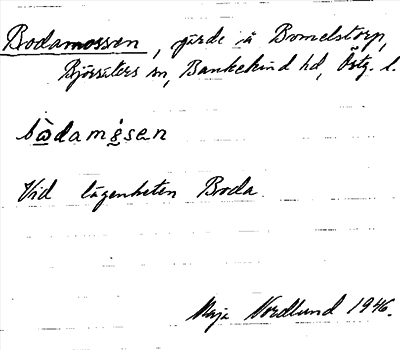 Bodamossen, gärde i Bomelstorp,
Björsäters sn, Bankekind hd, Östg. l.
Vid lägenheten Boda.
Maja Nordlund 1946.